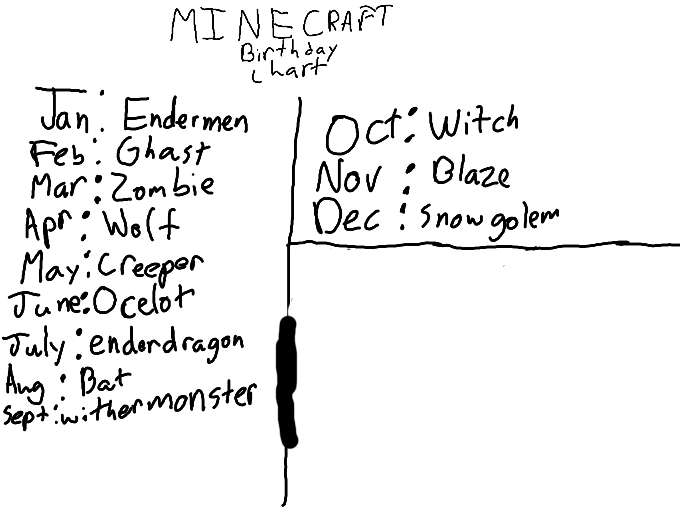 MINECRAFT
Birthday
chart
Jan: Endermen
Feb: Ghast
Mar: Zombie
Apr: Wolf
May: Creeper
June: Ocelot
July: enderdragon
Aug: Bat
Sept: withermonster
Oct: Witch
Nov: Blaze
Dec: Snowgolem